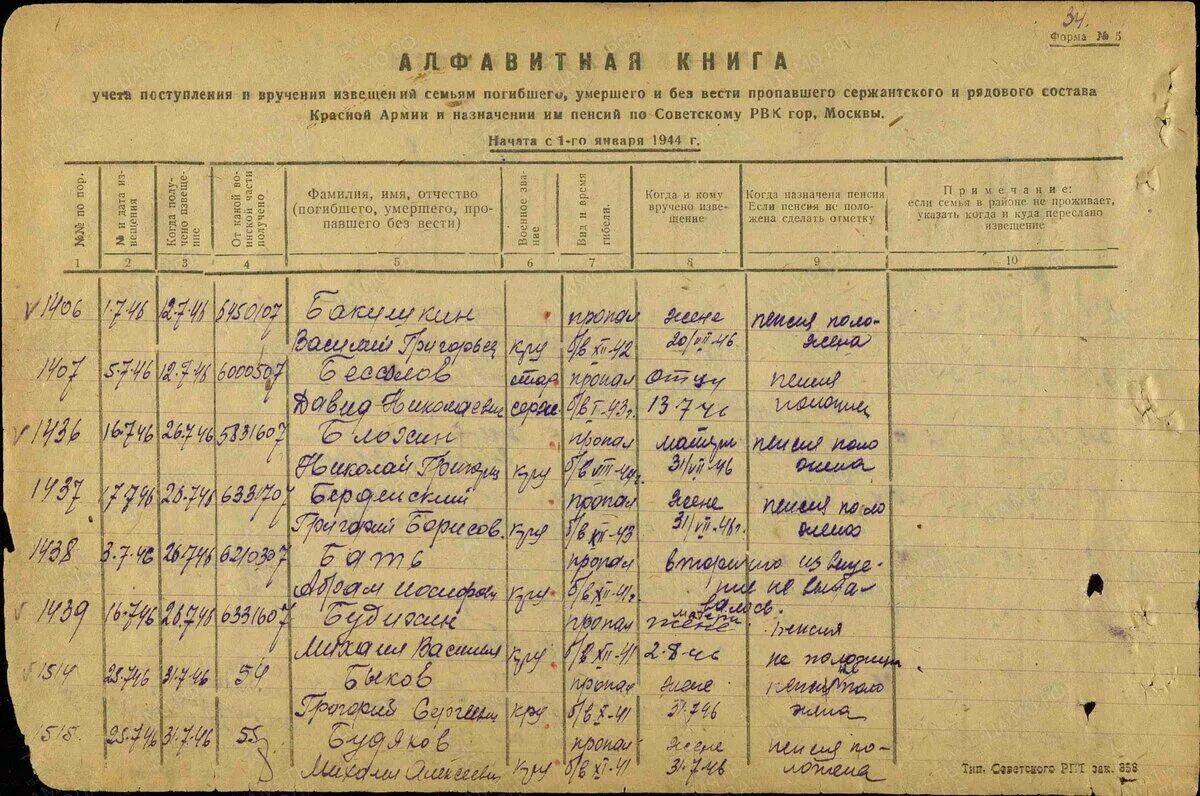 34.
Форма № 5
АЛФАВИТНАЯ КНИГА
учета поступления и вручения извещений семьям погибшего, умершего и без вести пропавшего сержантского и рядового состава
Красной Армии и назначении им пенсий по Советскому РВК гор, Москвы.
Начата с 1-го января 1944 г.
№№ по пор. № и дата извещения Когда получено извещение От какой воинской части получено Фамилия, имя, отчество (погибшего, умершего, пропавшего без вести) Военное звание Вид и время гибели. Когда и кому вручено извещение Когда назначена пенсия Если пенсия не положена сделать отметку Примечание: если семья в районе не проживает, указать когда и куда переслано извещение
1 2 3 4 5 6 7 8 9 10
v 1406 1.7.46 12.7.46 6450107 Бакушкин пропал жене пенсия поло-
Василий Григорьев кру б/в XII-42 20/VII-46 жена
1407 5.7.46 12.7.46 6000507 Бессолов стар пропал отцу пенсия
Давид Николаевич серж б/в I-43г. 13.7.46
v 1436 16.7.46 26.7.46 5831607 Блохин пропал матери пенсия поло
Николай Григор кру б/в VIII 31/VII-46 жена
1437 17.7.46 26.7.46 6331707 пропал жене пенсия поло
Григорий Борисов. кру б/в XII-43 31/VII-46г. жена
1438 3.7.46 26.7.46 6210307 Бать пропал вторично извеще-
Абрам Иосифов кру б/в XII-41г. ние не выда
валось.
v 1439 16.7.46 26.7.46 6331607 Будихин пропал жене матери пенсия
Михаил Василье кру б/в XII-41 2-8-46 не положена
1514 25.7.46 31.7.46 54 Быков пропал жене пенсия поло
Григорий Сергееви кру б/в X-41 31.7.46 жена
1515. 25.7.46 31.7.46 55 Будяков пропал жене пенсия по-
Михаил Алексееви кру б/в XI-41 31.7-46 ложена
Тип. Советского РПТ зак. 858